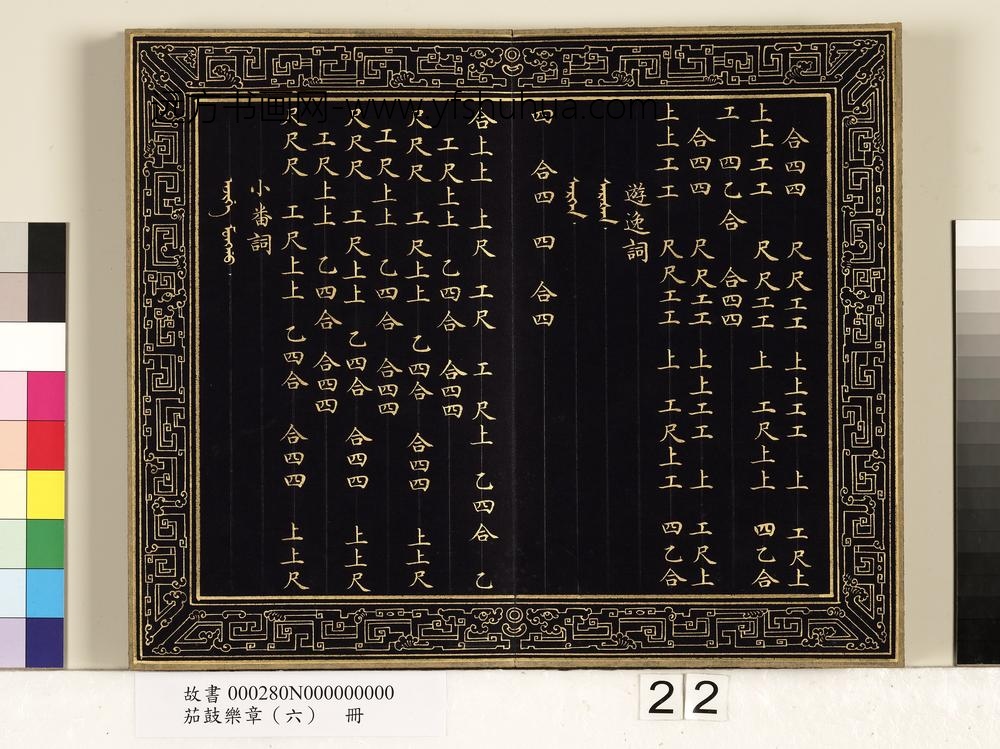 合四四 尺尺工工 上上工工 上 工尺上
上上工工 尺尺工工 上 工尺上上 四乙合
工 四乙合 合四四
合四四 尺尺工工 上上工工 上 工尺上
上上工工 尺尺工工 上 工尺上工 四乙合
遊逸詞
四 合四 四 合四
合上上 上尺 工尺 工 尺上 乙四合 乙
工尺上上 乙四合 合四四
尺尺尺 工尺上上 乙四合 合四四 上上尺
工尺上上 乙四合 合四四
尺尺尺 工尺上上 乙四合 合四四 上上尺
工尺上上 乙四合 合四四
尺尺尺 工尺上上 乙四合 合四四 上上尺
小番詞
方书画网-www.yfshuhua.com
故書 000280N000000000
茄鼓樂章（六） 冊
22